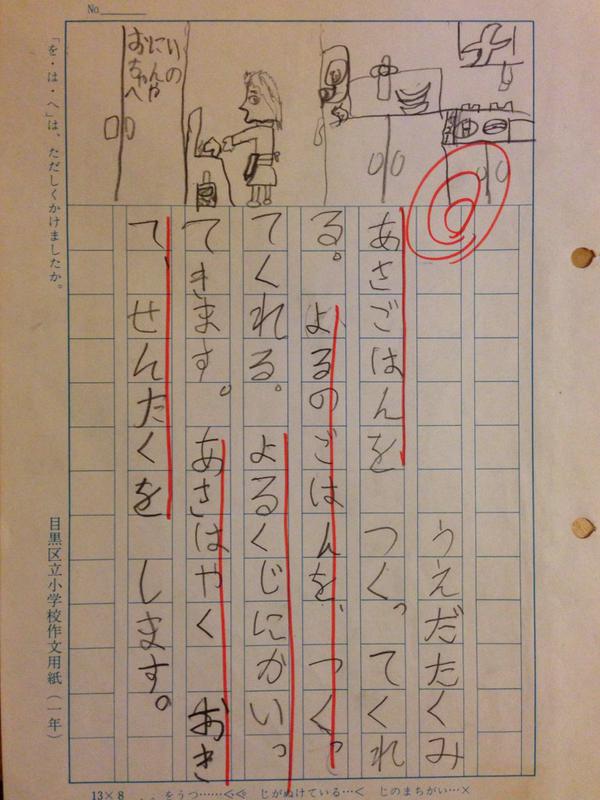 No.
おにいの
ちゃんや
へ
うえだたくみ
あさごはんを つくってくれ
る。よるのごはんを、つくっ
てくれる。よるくじにかいっ
てきます。あさはやく おき
て、せんたくを します。
「を・は・へ」は、ただしくかけましたか。
目黒区立小学校作文用紙（一年）
13×8 をうつ……≪ じがぬけている…＜ じのまちがい…×